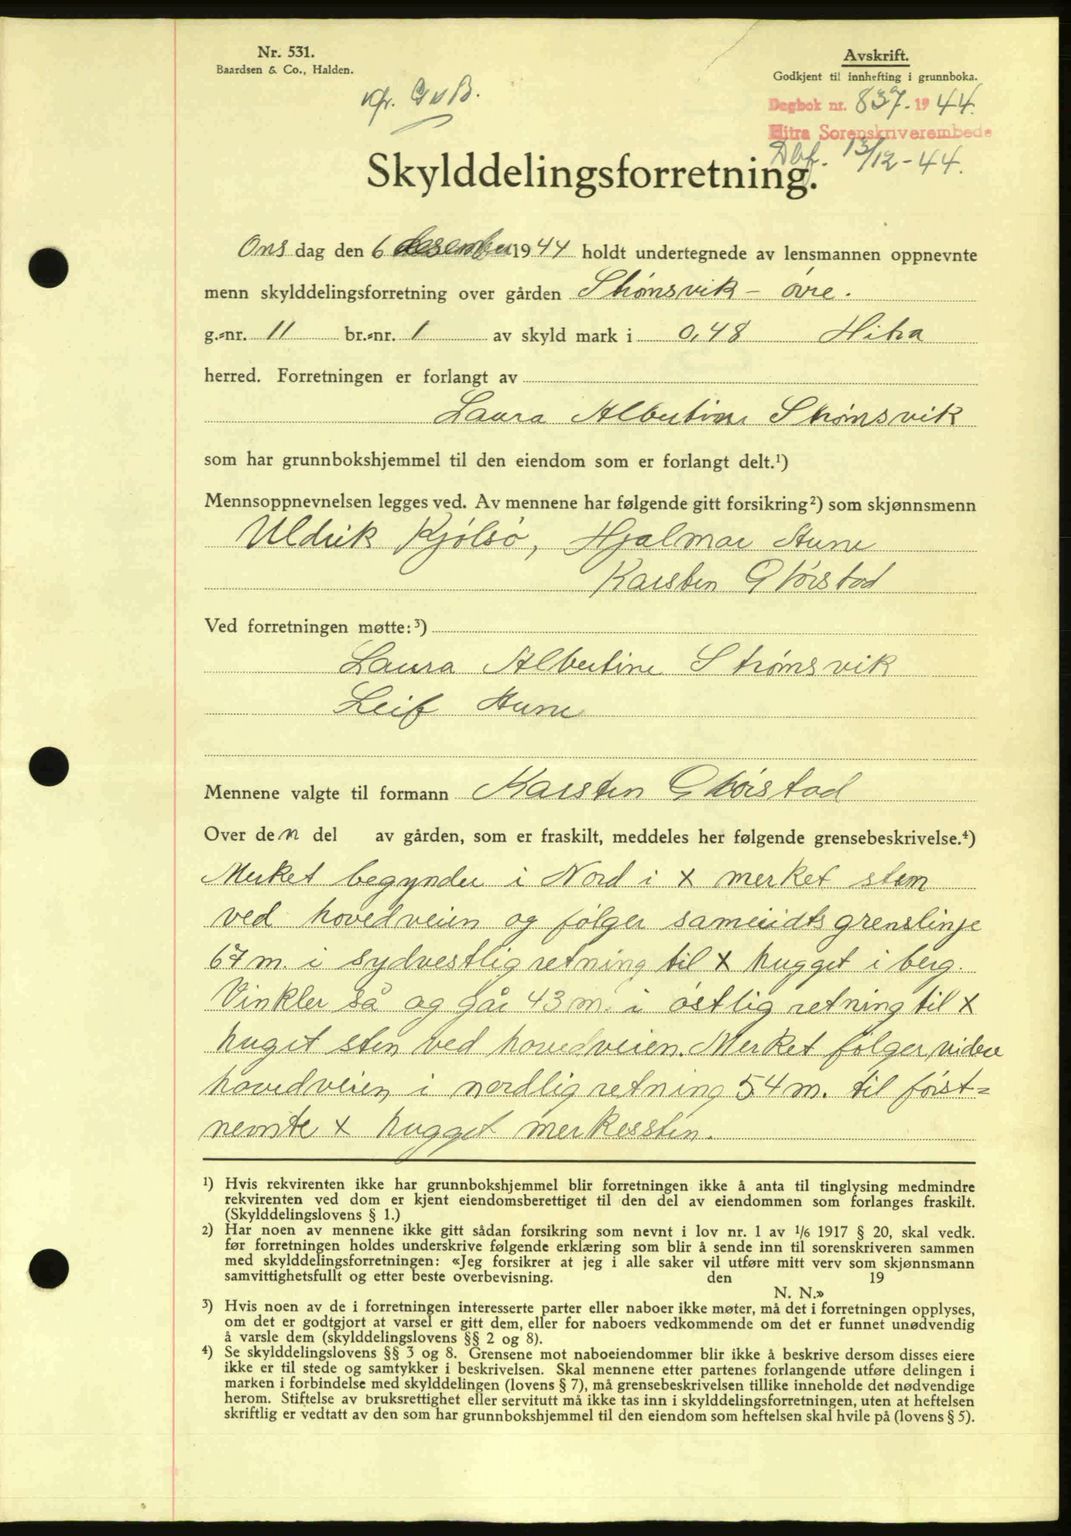 Nr. 531.
Baardsen & Co., Halden.
Avskrift.
Godkjent til innhefting i grunnboka.
Dagbok nr. 837. 1944.
Hitra Sorenskriverembede
Dbf. 13/12-44.
Skylddelingsforretning.
Onsdag den 6 desember 1944 holdt undertegnede av lensmannen oppnevnte
menn skylddelingsforretning over gården Strømsvik - øvre.
g.-nr. 11 br.-nr. 1 av skyld mark i 0,48 Hitra
herred. Forretningen er forlangt av
Laura Albertine Strømsvik
som har grunnbokshjemmel til den eiendom som er forlangt delt.¹)
Mennsoppnevnelsen legges ved. Av mennene har følgende gitt forsikring²) som skjønnsmenn
Uldrik Kjølsø, Hjalmar Aune
Karsten Glørstad
Ved forretningen møtte:³)
Laura Albertine Strømsvik
Leif Aune
Mennene valgte til formann Karsten Glørstad
Over den del av gården, som er fraskilt, meddeles her følgende grensebeskrivelse.⁴)
Merket begynder i Nord i x merket sten
ved hovedveien og følger grenslinje
67 m. i sydvestlig retning til x hugget i berg.
Vinkler så og går 43 m. i østlig retning til x
huget sten ved hovedveien. Merket følger videre
hovedveien i nordlig retning 54 m. til først=
nevnte x hugget merkessten.
¹) Hvis rekvirenten ikke har grunnbokshjemmel blir forretningen ikke å anta til tinglysing medmindre
rekvirenten ved dom er kjent eiendomsberettiget til den del av eiendommen som forlanges fraskilt.
(Skylddelingslovens § 1.)
²) Har noen av mennene ikke gitt sådan forsikring som nevnt i lov nr. 1 av 1/6 1917 § 20, skal vedk.
før forretningen holdes underskrive følgende erklæring som blir å sende inn til sorenskriveren sammen
med skylddelingsforretningen: «Jeg forsikrer at jeg i alle saker vil utføre mitt verv som skjønnsmann
samvittighetsfullt og etter beste overbevisning. den 19
N. N.»
³) Hvis noen av de i forretningen interesserte parter eller naboer ikke møter, må det i forretningen opplyses,
om det er godtgjort at varsel er gitt dem, eller for naboers vedkommende om det er funnet unødvendig
å varsle dem (skylddelingslovens §§ 2 og 8).
⁴) Se skylddelingslovens §§ 3 og 8. Grensene mot naboeiendommer blir ikke å beskrive dersom disses eiere
ikke er til stede og samtykker i beskrivelsen. Skal mennene etter partenes forlangende utføre delingen i
marken i forbindelse med skylddelingen (lovens § 7), må grensebeskrivelsen tillike inneholde det nødvendige
herom. Stiftelse av bruksrettighet eller servitutt må ikke tas inn i skylddelingsforretningen, uten at heftelsen
skriftlig er vedtatt av den som har grunnbokshjemmel til den eiendom som heftelsen skal hvile på (lovens § 5).